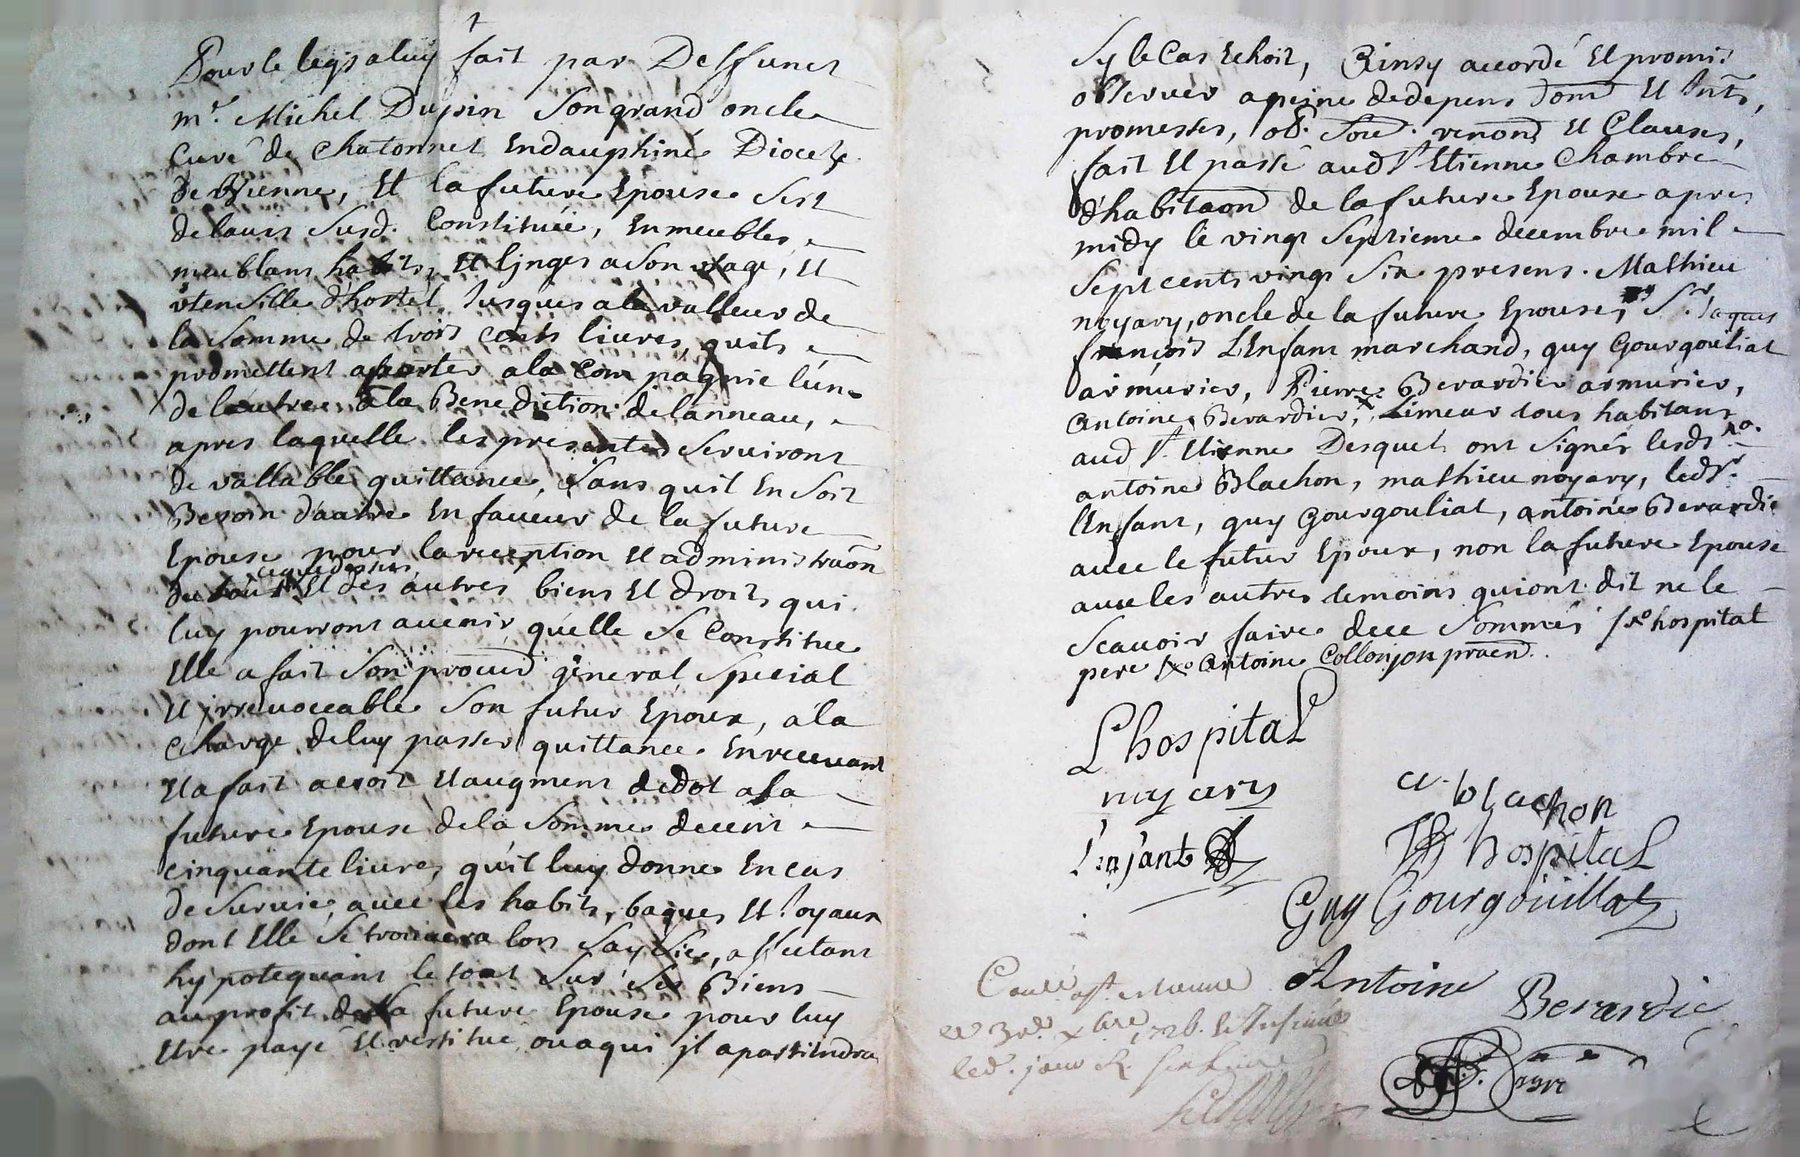 Pour le legs a luy fait par Deffunct
mr. Michel Dupin Son grand oncle
Curé de chatonnet En dauphiné Diocese
de Vienne, Et la future Epouse s'est
de leur susd. Constituée, En meubles
meublans habits, Et linges a son usage, Et
vtensille d'hostel Jusques a la valleur de
la Somme de trois cents livres quils
promettent apporter a la Compagnie lun
de lautre a la Benediction de lanneau,
apres laquelle les presentes Serviront
de vallable quittance, Sans quil En Soit
Besoin dautre En faveur de la future
Epouse pour la reception Et administraõn
ce que dessus
du Et des autres biens Et droits qui
luy pourront avenir quelle Se Constitue
Elle a fait Son procur̃ general, Special
Et irrevoccable Son futur Epoux, a la
charge de luy passer quittance En recevant
Et a fait acroit Et augment de dot a la
future Epouse de la Somme de cent
cinquante livres quil luy donne En cas
de Survie avec les habits, bagues Et Joyaux
dont Elle Se trouvera lors Saysie, affectant
hypotequant le tout Sur Ses Biens
au profit de la future Epouse pour luy
Etre payé Et restitué ou a qui jl apartiendra
Sy le Cas Echoit, Ainsy accordé Et promis
observer a peine de depens dom̃ Et Jnts,
promesses, ob. Soum. renonc̃ Et Clauses,
fait Et passé aud St Etienne Chambre
d'habitaõn de la future Epouse apres
midy le vingt Septieme decembre mil
Sept cents vingt Six presens. Mathieu
noyary, oncle de la future Epouse, Sr. Jaques
françois LEnfant marchand, guy Gourgouliat
armurier, Pierre Berardier armurier,
Antoine Berardier, Limeur tous habitans
aud St. Etienne Desquels ont Signés lesd.
antoine Blachon, mathieu noyary, led Sr.
lEnfant, guy Gourgouliat, antoine Berardie
avec le futur Epoux, non la future Epouse
avec les autres temoins qui ont dit ne le
Scavoir faire de ce Sommés lhospital
pere Antoine Collonjon praen̄.
Lhospital
noyary
a. blachon
Lenfant
hospital
Guy Gourgouillat
Antoine Berardie
Conllé a St. estienne
le 3e. xbre, 1726. Et Insinué
led. jour R.